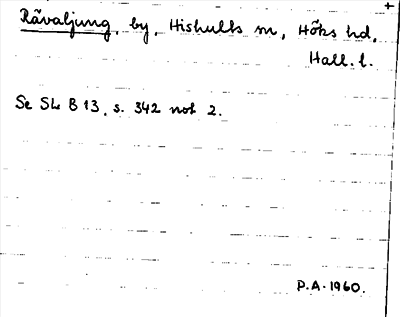 Rävaljung, by, Hishults sn, Höks hd,
Hall. l.
Se SL B 13, s. 342 not 2.
P.A. 1960.